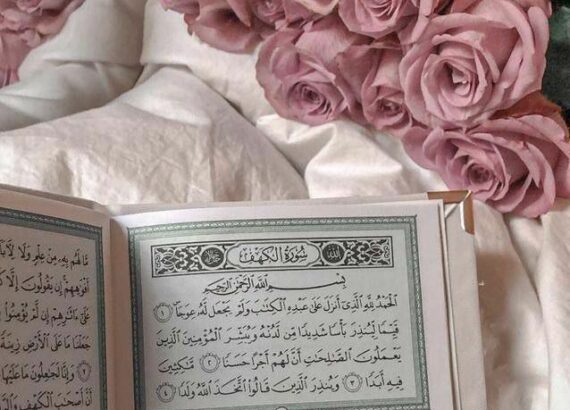 سُورَةُ الكَهْفِ
بِسْمِ اللَّهِ الرَّحْمَٰنِ الرَّحِيمِ
الْحَمْدُ لِلَّهِ الَّذِي أَنزَلَ عَلَىٰ عَبْدِهِ الْكِتَٰبَ وَلَمْ يَجْعَل لَّهُ عِوَجَا ١
قَيِّمًا لِّيُنذِرَ بَأْسًا شَدِيدًا مِّن لَّدُنْهُ وَيُبَشِّرَ الْمُؤْمِنِينَ الَّذِينَ
يَعْمَلُونَ الصَّٰلِحَٰتِ أَنَّ لَهُمْ أَجْرًا حَسَنًا ٢ مَّٰكِثِينَ
فِيهِ أَبَدًا ٣ وَيُنذِرَ الَّذِينَ قَالُوا اتَّخَذَ اللَّهُ وَلَدًا ٤
مَّا لَهُم بِهِ مِنْ عِلْمٍ وَلَا
أَفْوَٰهِهِمْ إِن يَقُولُونَ إِلَّا
عَلَىٰ ءَاثَٰرِهِمْ إِن لَّمْ يُؤْمِنُوا
جَعَلْنَا مَا عَلَى الْأَرْضِ زِينَةً
٧ وَإِنَّا لَجَٰعِلُونَ مَا عَلَيْهَا
أَنَّ أَصْحَٰبَ الْكَهْفِ